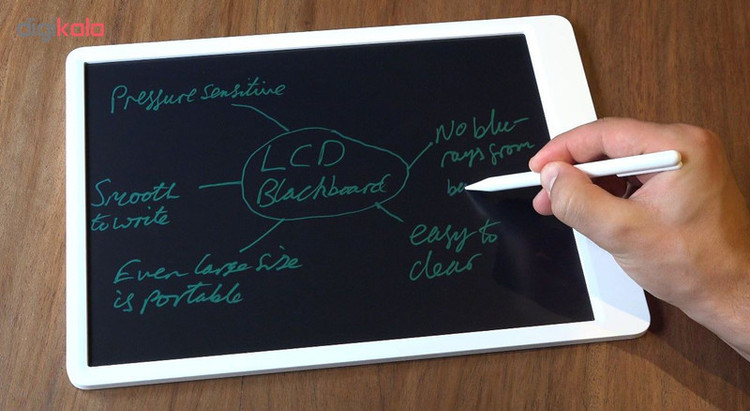 digikala
Pressure sensitive
LCD
Blackboard
No blu-
rays from
be
Smooth
to write
easy to
clear
Even large size
is portable